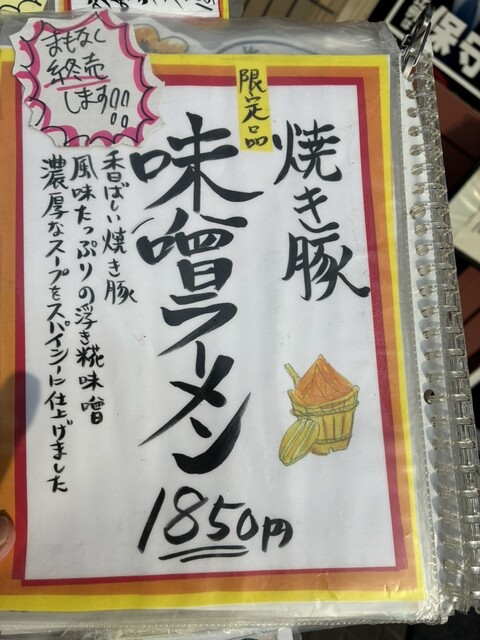 まもなく
終売
します!!
限定品
焼き豚
味噌ラーメン
香ばしい焼き豚
風味たっぷりの浮き糀味噌
濃厚なスープをスパイシーに仕上げました
1850円
保守